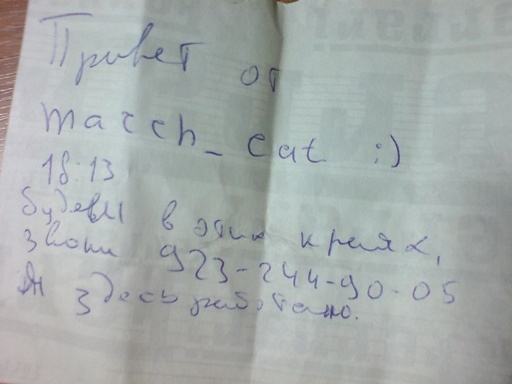 Привет от
march_cat :)
18:13
будешь в этих краях,
звони 923-244-90-05
Я здесь работаю.